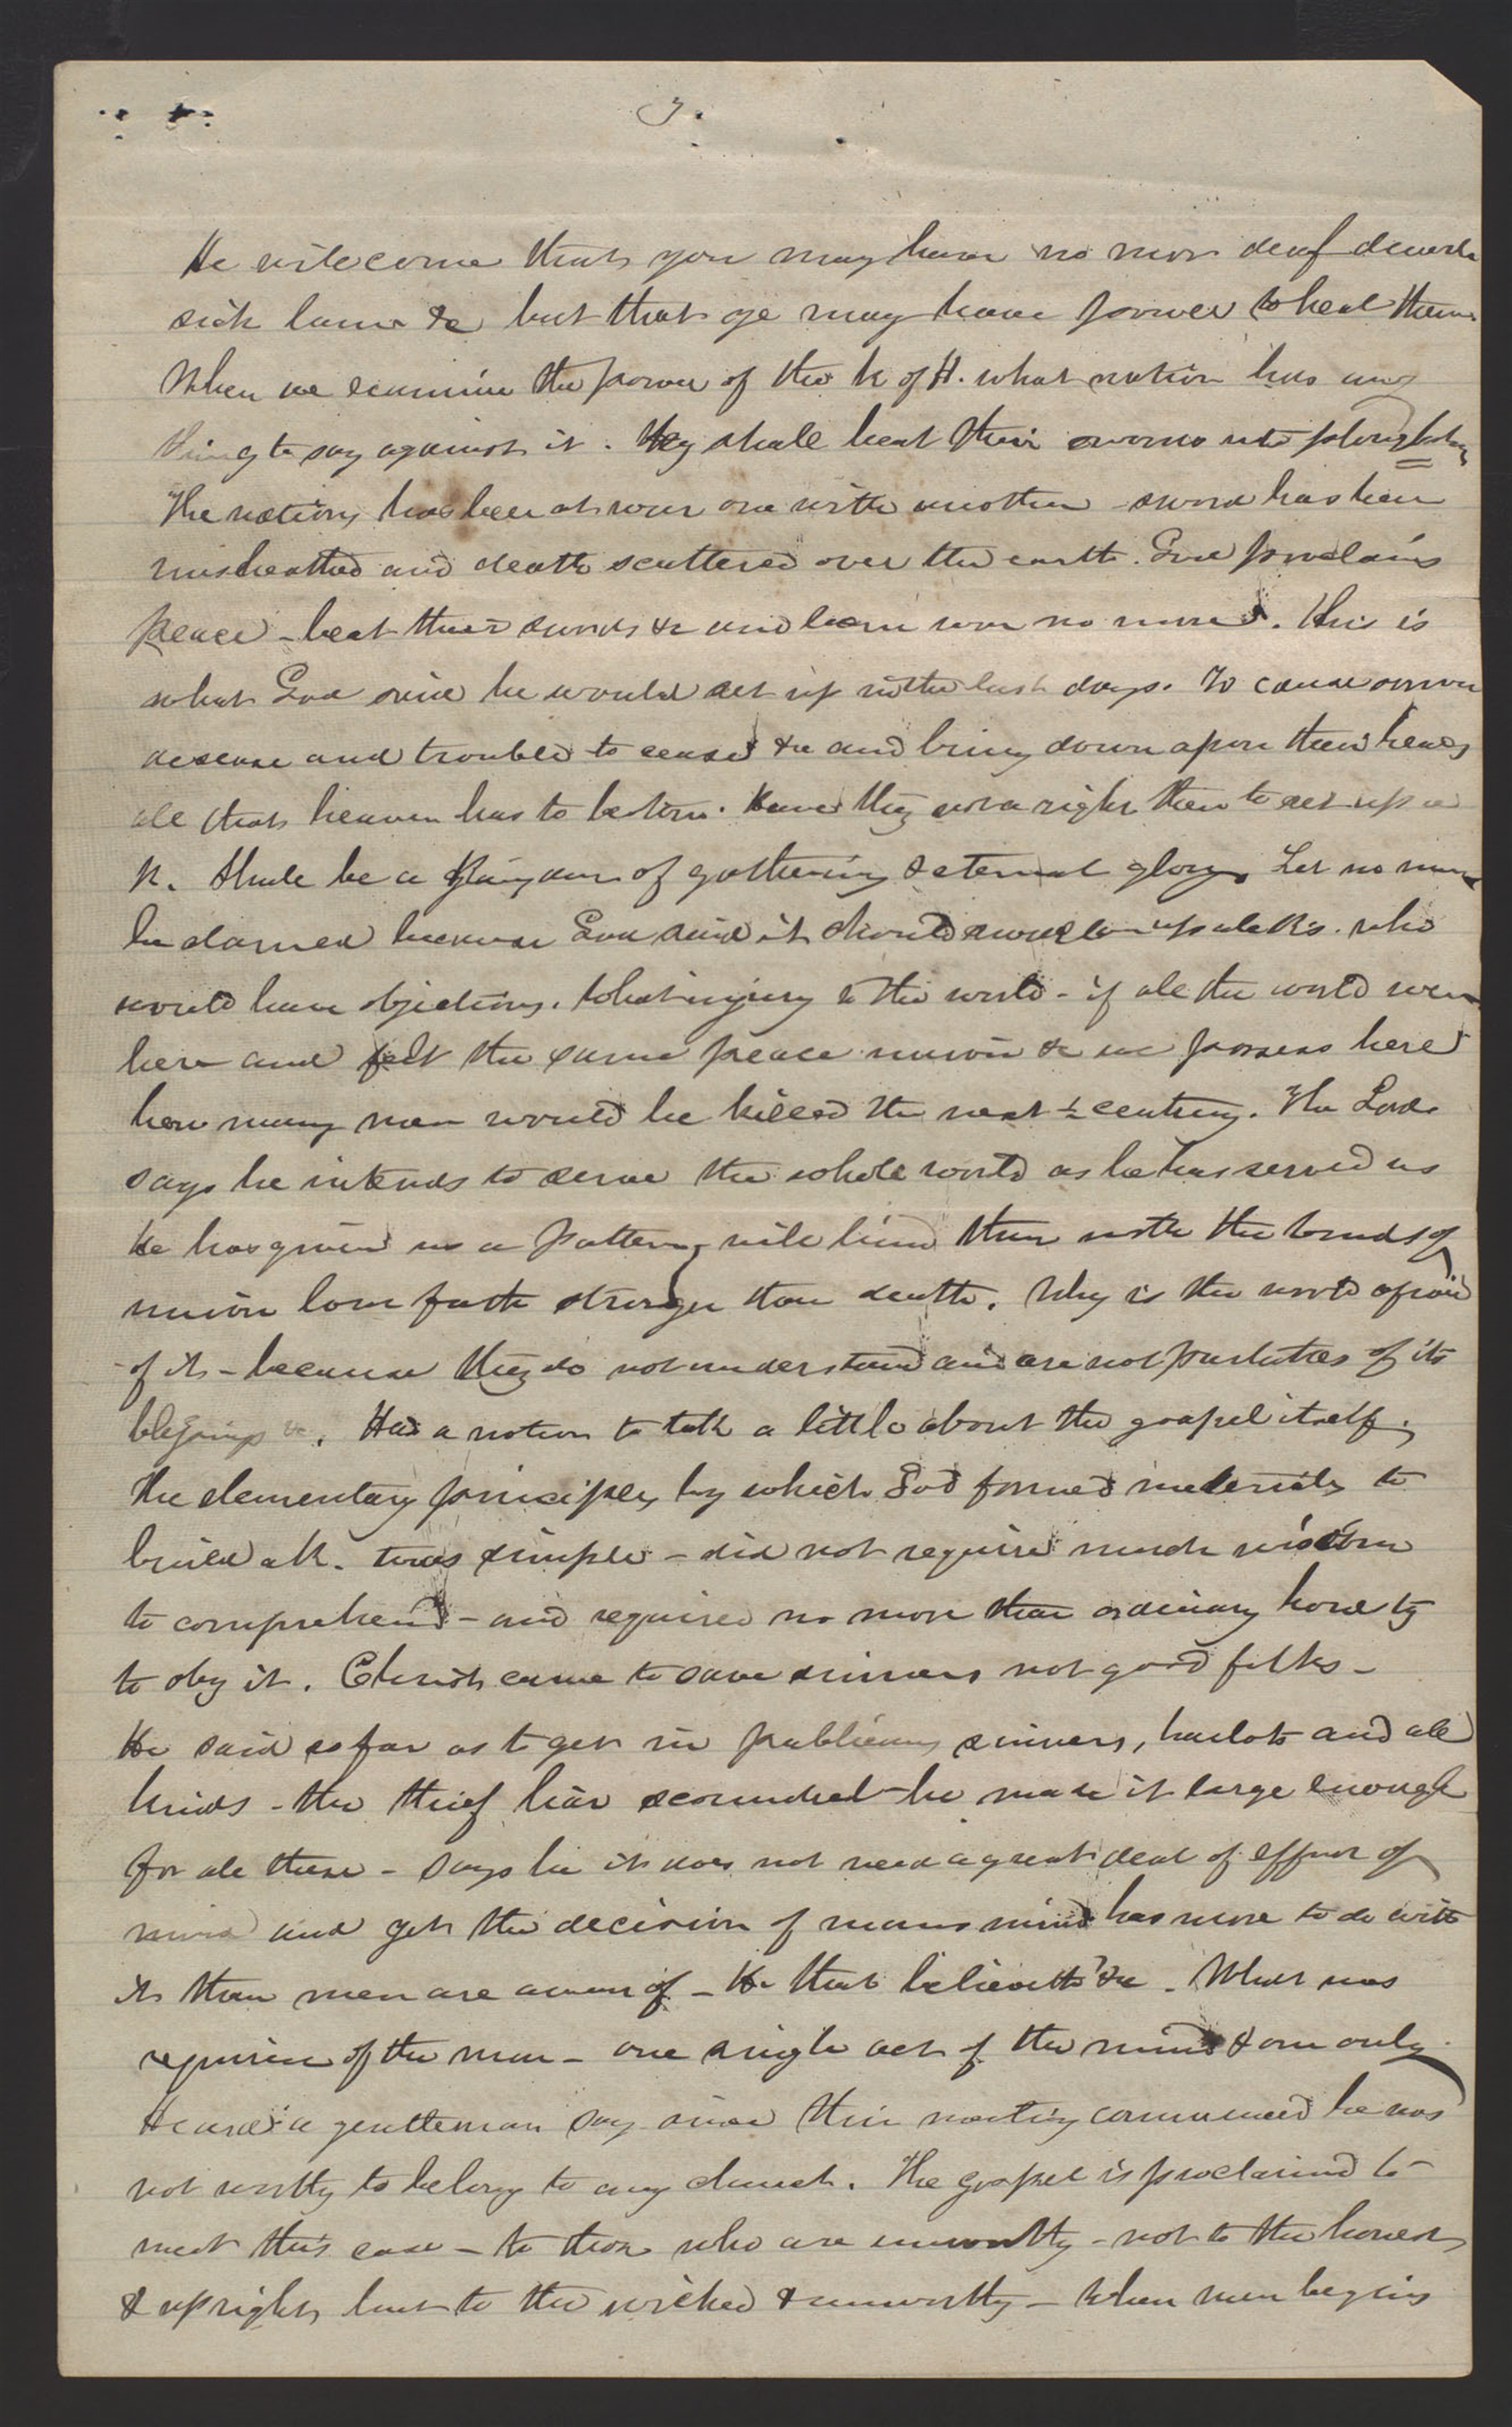 3.
He will come that you may have no more deaf dumb
sick lame &c but that ye may have power to heal them.
When we examine the power of the K of H. what nation has any
thing to say against it. They shall beat their swords into plough
The nations has been at war one with another - sword has been
unsheathed and death scattered over the earth. God proclaims
peace - beat their swords &c and learn war no more. This is
what God said he would set up in the last days. To cause sorrow
disease and trouble to cease &c and bring down upon their heads
all that heaven has to bestow. Have they not a right then to set up a
K. Shall be a Kingdom of gathering & eternal glory. Let no man
be alarmed because God said it should swallow up all K's. who
would have objections. What injury to the world - if all the world were
here and felt the same peace union &c we possess here
how many men would be killed the next ½ century. The Lord
says he intends to serve the whole world as he has served us
He has given us a pattern, will bind them with the bonds of
union love faith stronger than death. Why is the world afraid
of it - because they do not understand and are not partakers of its
blessings &c. Had a notion to talk a little about the gospel itself,
the elementary principles by which God formed materials to
build a K. twas simple - did not require much wisdom
to comprehend - and required no more than ordinary honesty
to obey it. Christ came to save sinners not good folks -
He said so far as to get in publicans, sinners, harlots and all
kinds - the thief liar scoundrel - he made it large enough
for all these - says he it does not need a great deal of effort of
mind and yet the decision of mans mind has more to do with
it than men are aware of - He that believeth &c. What was
required of the man - one single act of the mind & one only.
Heard a gentleman say since this meeting commenced he was
not worthy to belong to any church. The gospel is proclaimed to
meet this case - to those who are unworthy - not to the honest
& upright but to the wicked & unworthy - When men begins